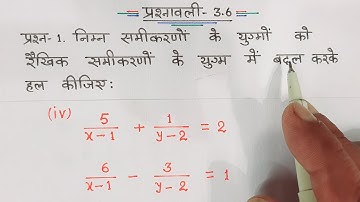 प्रश्नावली- 3.6
प्रश्न- 1. निम्न समीकरणों के युग्मों को
रैखिक समीकरणों के युग्म में बदल करके
हल कीजिए:
(iv) 5/(x-1) + 1/(y-2) = 2
6/(x-1) - 3/(y-2) = 1